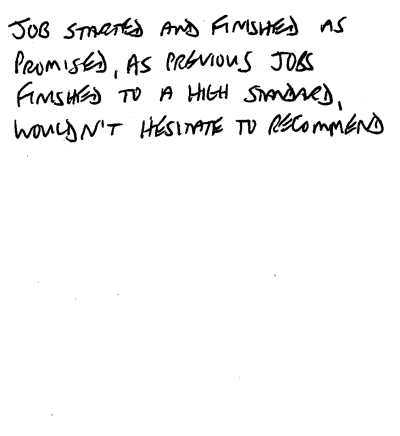 JOB STARTED AND FINISHED AS
PROMISED, AS PREVIOUS JOBS
FINISHED TO A HIGH STANDARD,
WOULDN'T HESITATE TO RECOMMEND